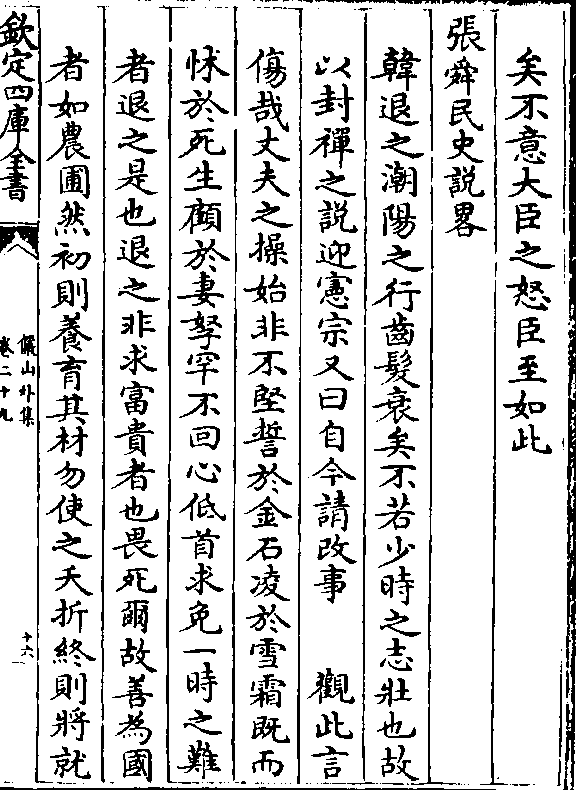 矣不意大臣之怒臣至如此
張舜民史説畧
韓退之潮陽之行齒髮衰矣不若少時之志壯也故
以封禪之説迎憲宗又曰自今請改事　觀此言
傷哉丈夫之操始非不堅誓於金石凌於雪霜既而
怵於死生顧於妻孥罕不回心低首求免一時之難
者退之是也退之非求富貴者也畏死爾故善為國
者如農圃然初則養育其材勿使之夭折終則將就
欽定四庫全書
儼山外集
卷二十九
十六